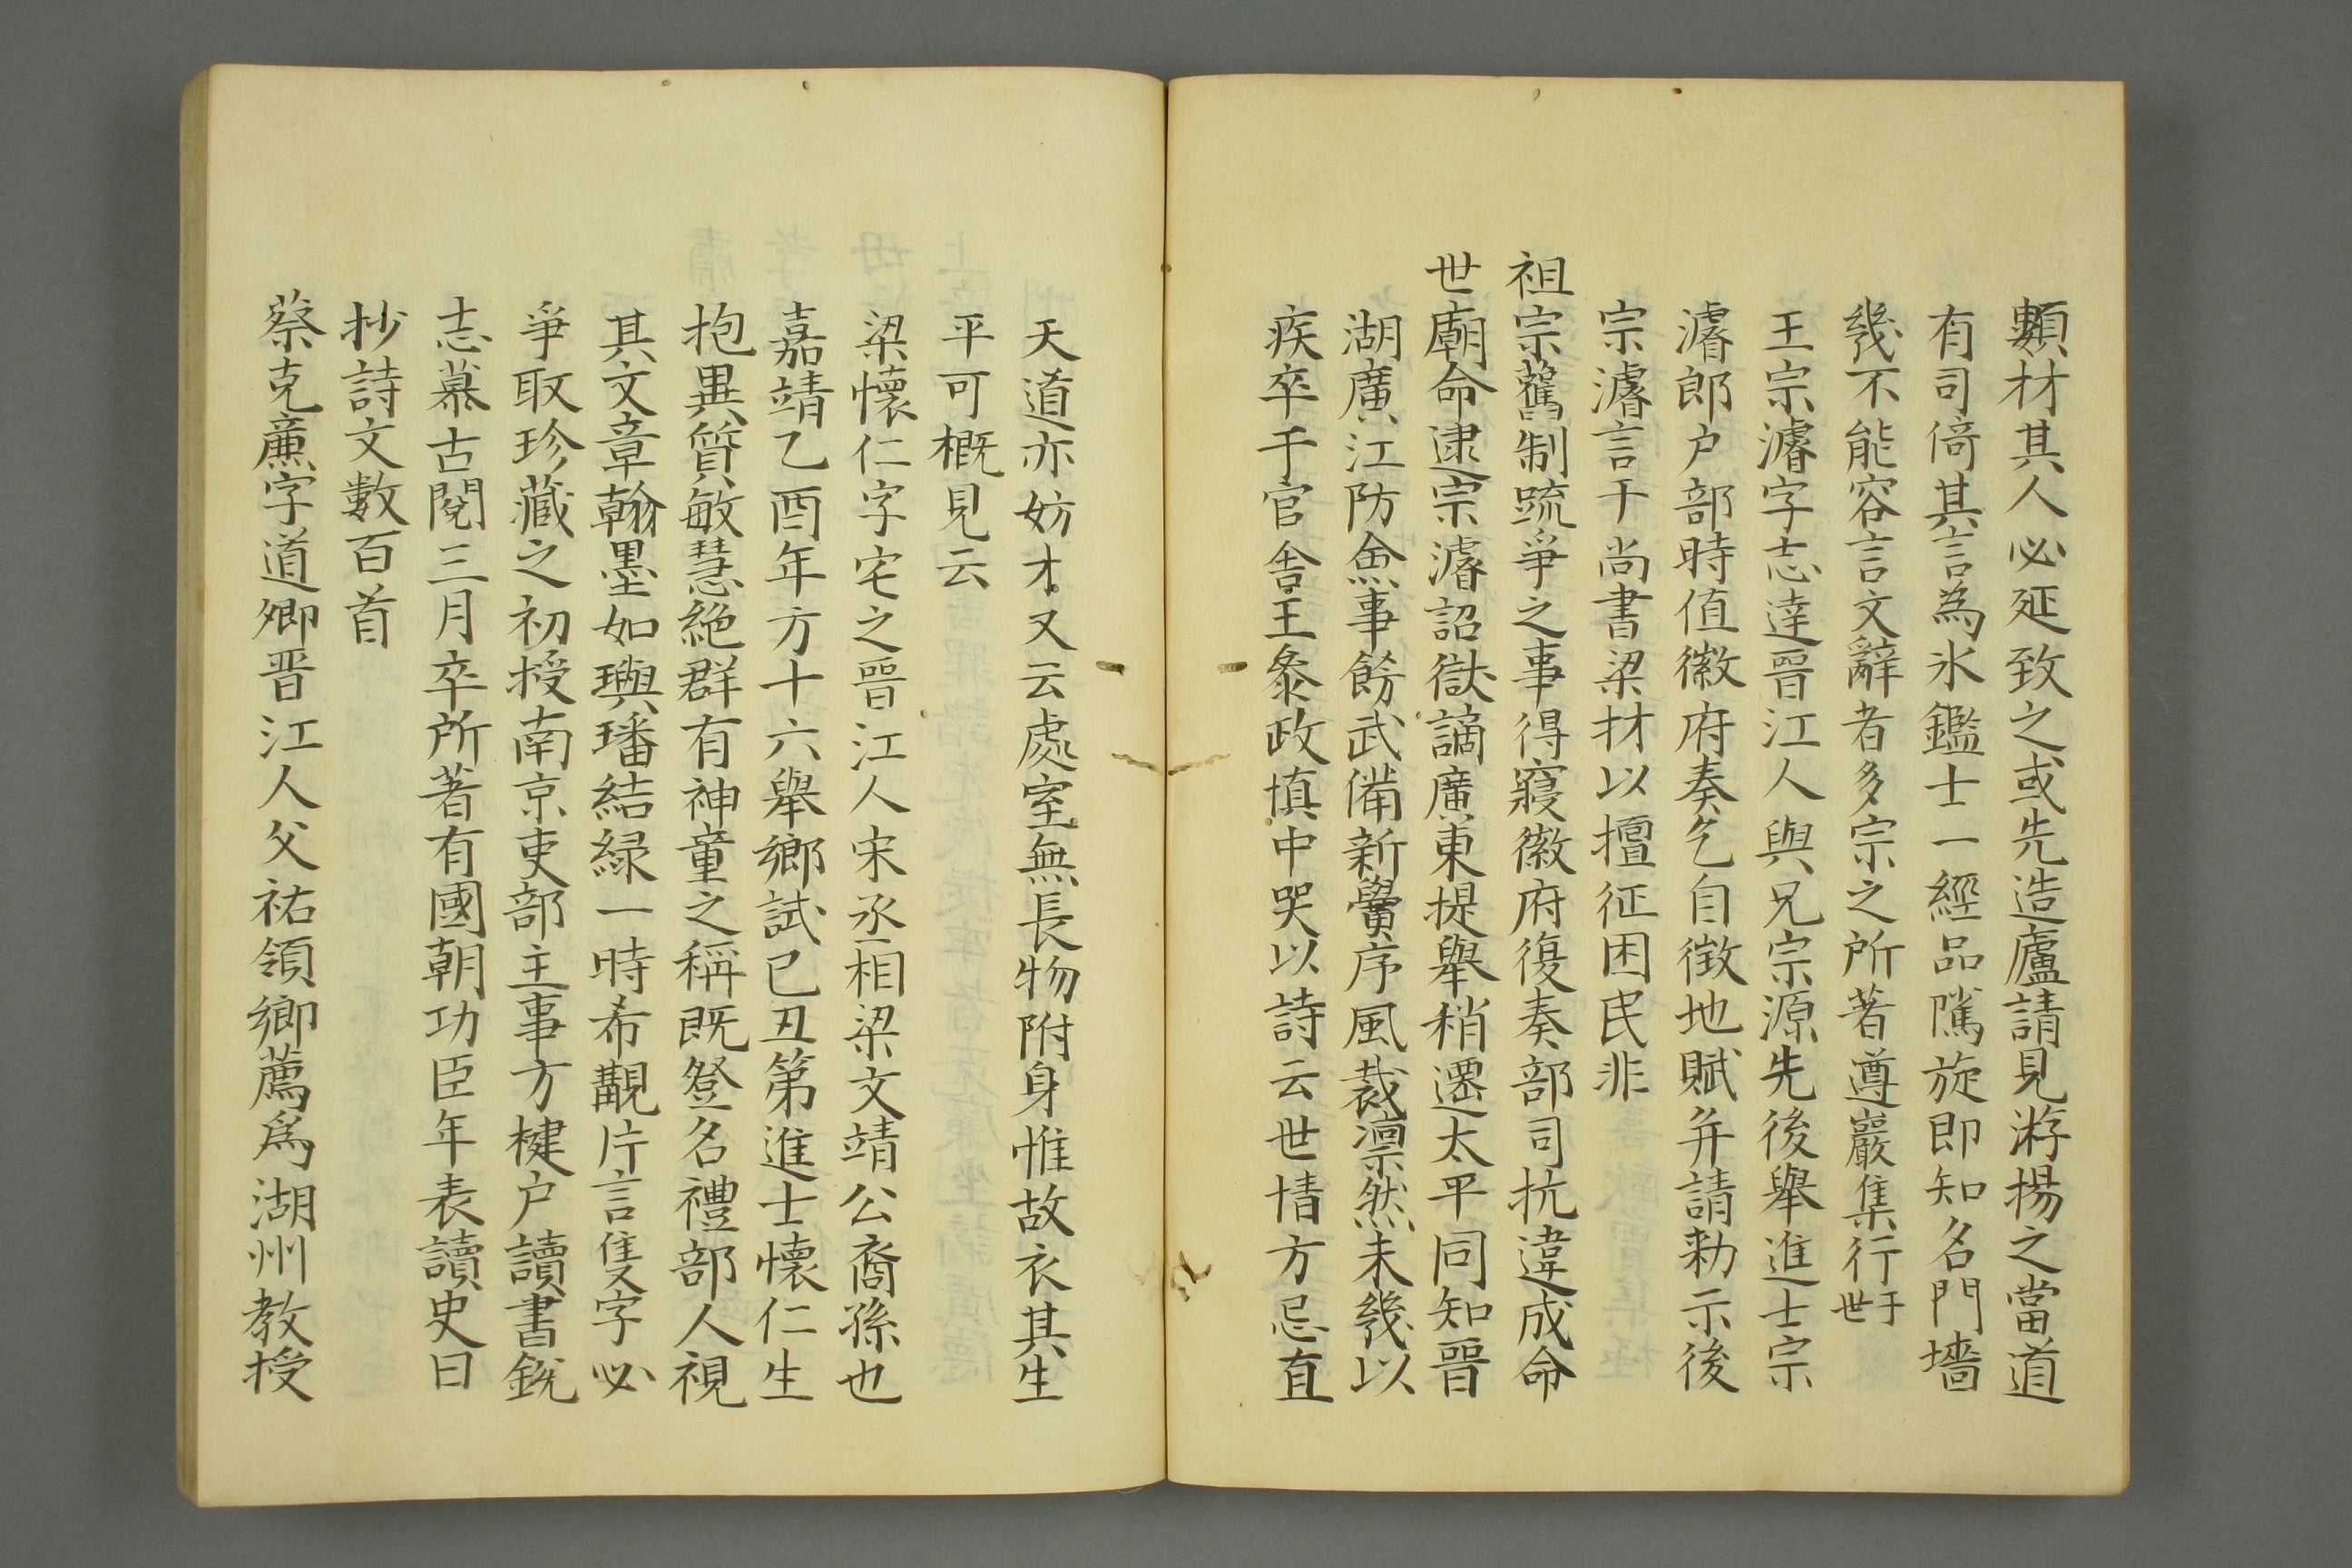 類材其人必延致之或先造廬請見游揚之當道
有司倚其言為氷鑑士一經品隲旋即知名門墻
幾不能容言文辭者多宗之所著遵巖集行于世
王宗濬字志達晉江人與兄宗源先後舉進士宗
濬郎户部時值徽府奏乞自徴地賦并請勑示後
宗濬言于尚書梁材以擅征困民非
祖宗舊制䟽爭之事得寢徽府復奏部司抗違成命
世廟命逮宗濬詔獄謫廣東提舉稍遷太平同知晉
湖廣江防僉事餙武備新黌序風裁凛然未幾以
疾卒于官舍王叅政慎中哭以詩云世情方忌直
天道亦妨才又云處室無長物附身惟故衣其生
平可概見云
梁懷仁字宅之晉江人宋丞相梁文靖公裔孫也
嘉靖乙酉年方十六舉鄉試已丑第進士懷仁生
抱異質敏慧絶群有神童之稱既登名禮部人視
其文章翰墨如璵璠結緑一時希覯片言隻字必
爭取珍藏之初授南京吏部主事方楗户讀書銳
志慕古閱三月卒所著有國朝功臣年表讀史日
抄詩文數百首
蔡克亷字道卿晋江人父祐領鄉薦爲湖州教授